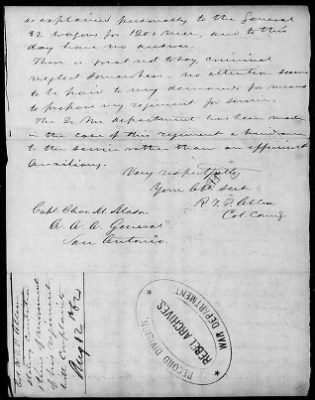 as explained personally to the General
32 wagons for 1200 men, and to this
day have no answer.
There is great not to say, criminal
neglect somewhere — no attention seems
to be paid to my demands for means
to prepare my regiment for service.
The Qr Mr department has been made
in the case of this regiment a hindrance
to the service rather than an efficient
Auxiliary.
Very respectfully
Your Obt Servt
R. T. P. Allen
Col Comg
Capt Chas. M. Mason
A. A. A. General
San Antonio.
Col. R. T. P. Allen
of movement
of his regiment
with complaints
Aug 12 1862
RECORD DIVISION,
REBEL ARCHIVES
WAR DEPARTMENT